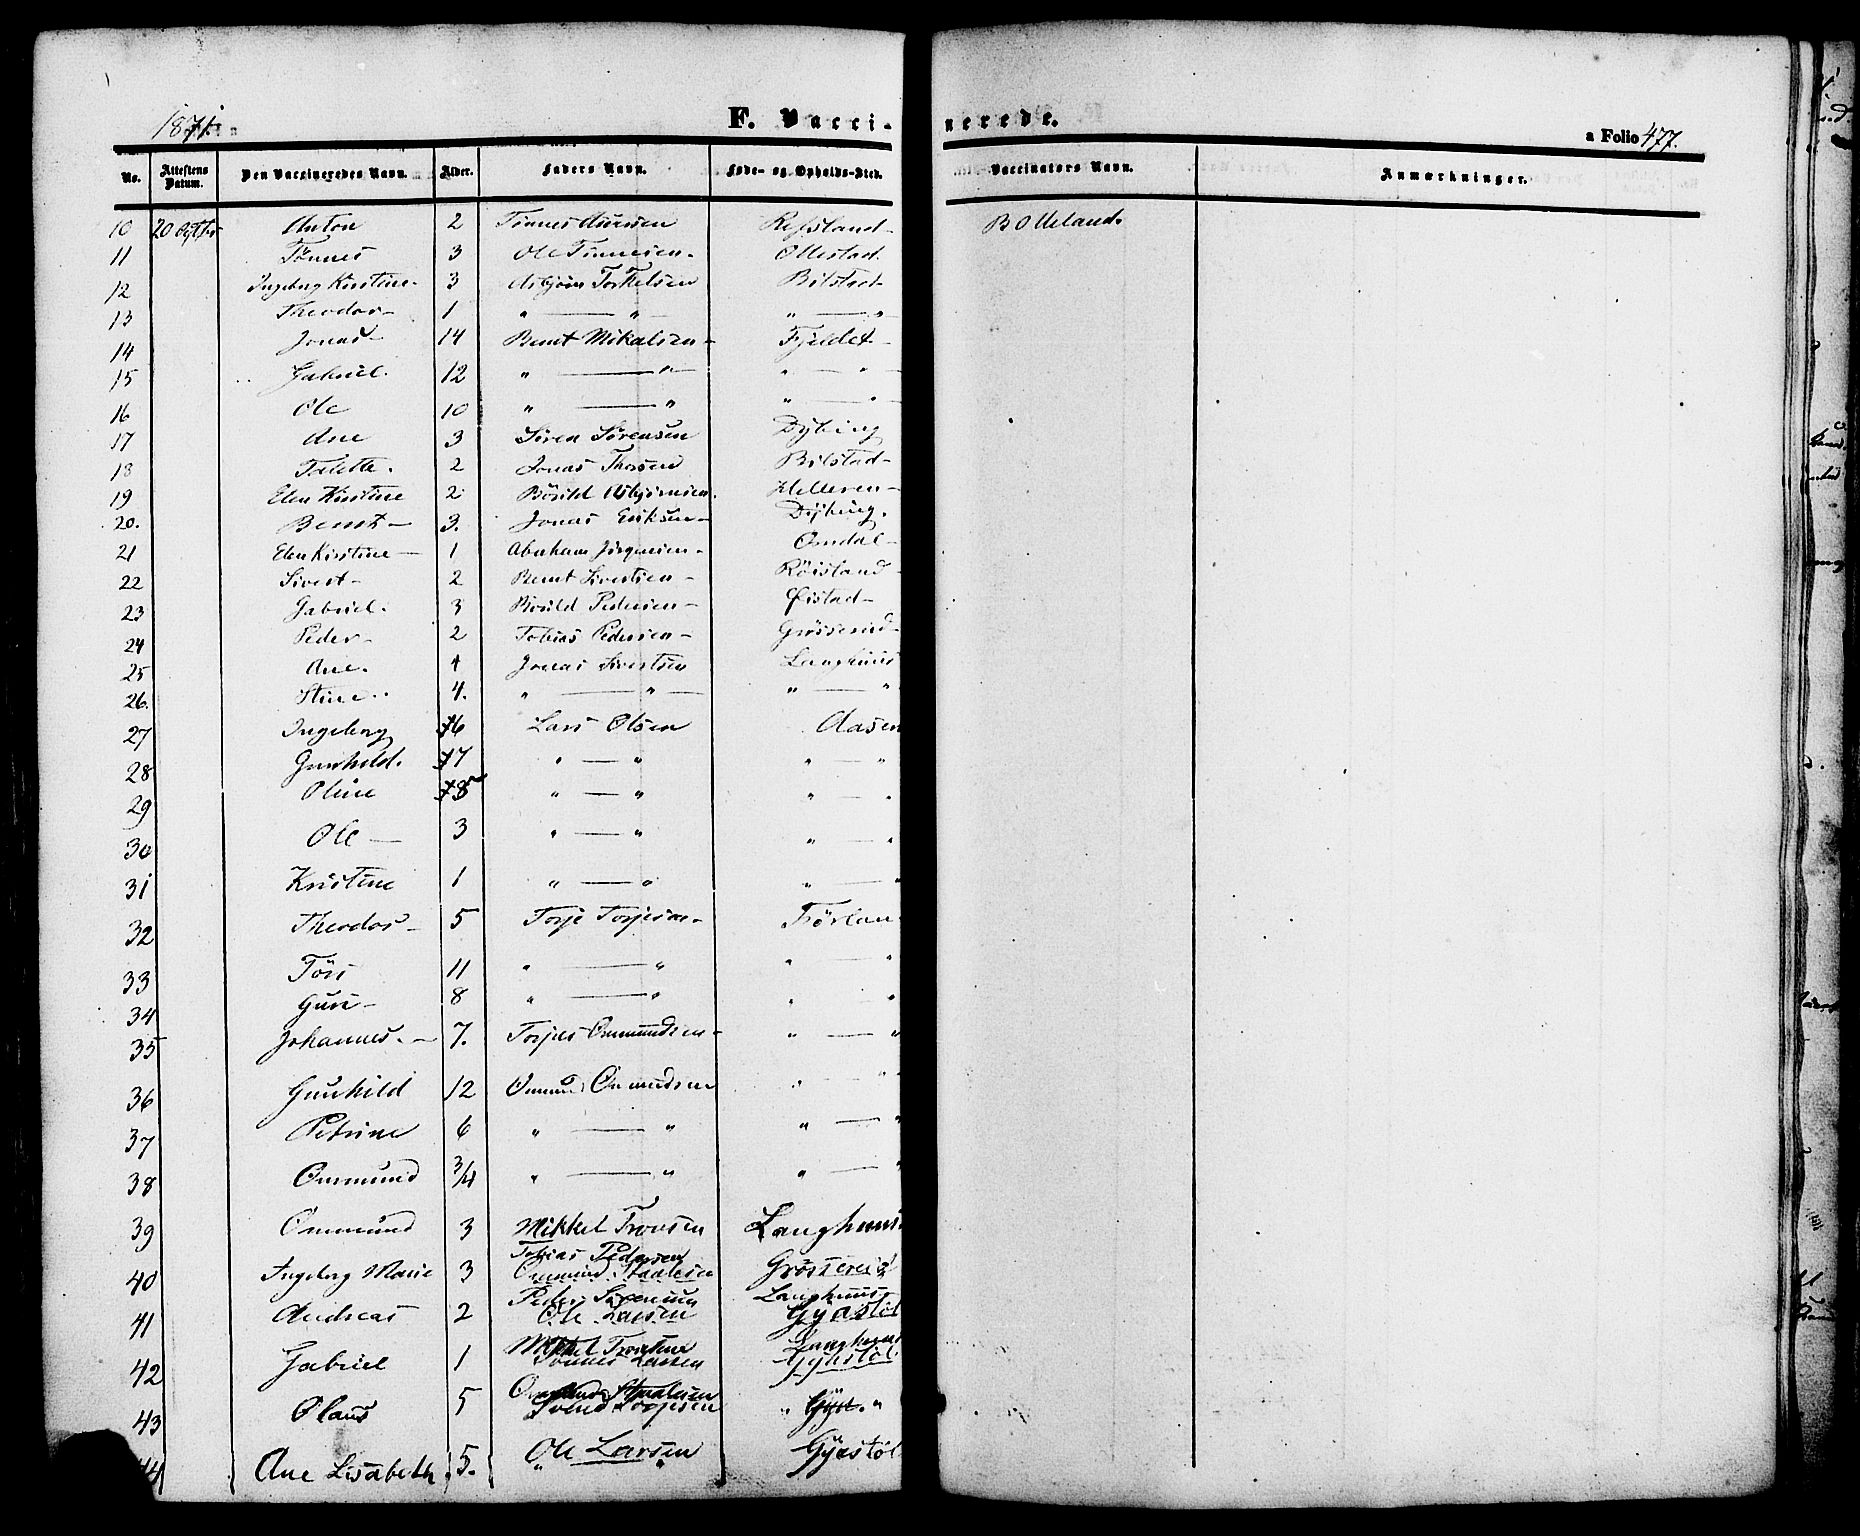 1871.
F. Vaccinerede.
a Folio 477.
No. Attestens Datum. Den Vaccineredes Navn. Alder. Faders Navn. Føde- og Opholds-Sted. Vaccinators Navn. Anmærkninger.
10 20 Anton 2 Tinnes Refsland B O Meland.
11 Tønnes 3 Ole Tinnesen Ollestad.
12 Ingeborg Kirstine 3 Asbjørn Torkelsen Bilstad
13 Theodor 1 " — " " — "
14 Jonas 14 Bernt Mikalsen Fjeldet
15 Gabriel. 12 " — " " — "
16 Ole 10 " — " " — "
17 Ane 3 Sören Sörensen Dybing
18 Talette. 2 Jonas Thorsen Bilstad
19 Elen Kirstine 2 Börild Asbjörnsen. Helleren
20. Bernt 3. Jonas Eriksen Dybing.
21 Elen Kirstine 1 Abraham Jörgensen Omdal
22 Sivert 2 Bernt Sivertsen Röisland
23 Gabriel. 3 Börild Pedersen Øistad
24 Peder 2 Tobias Pedersen Grösserud
25 Ane. 4 Jonas Sivertsen Langhuus
26. Stine. 4. " — " " — "
27 Ingeborg 6 Lars Olsen Aasen
28 Gunhild. 7 " — " " — "
29 Oline 5 " — " " — "
30 Ole 3 " — " " "
31 Kristine 1 " — " " — "
32 Theodor 5 Torje Torjesen Törlan
33 Törs 11 " — " " "
34 Guri 8 " — " " "
35 Johannes. 7. Torjes Ommundsen " — "
36 Gunhild 12 Ommund Ommundsen " — "
37 Petrine 6 " — " " — "
38 Ommund 3/4 " — " " — "
39 Ommund 3 Mikkel Tronsen Langhuus
40 Ingeborg Marie 3 Tobias Pedersen Ommund Staalesen Grösserud
41 Andreas 2 Peder Ole Larsen Langhuus Gyastöl
42 Gabriel 1 Mikkel Tronsen Tönnes Larsen Langhuus Gyastöl
43 Olaus 5 Ommund Staalesen Svend Torjesen " Gyst. "
44 Ane Lisabeth 5. Ole Larsen Gyastöl